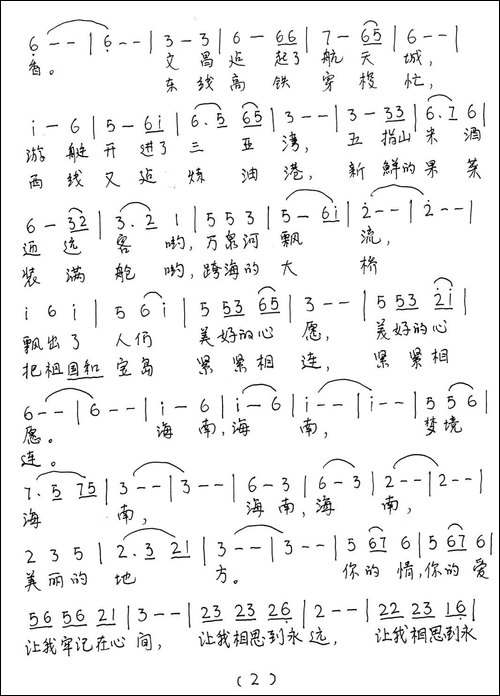 6 - - | 6 - - | 3 - 3 | 6 - 66 | 7 - 65 | 6 - - |
香。 文 昌 起了 航 天 城,
东 线 高 铁 穿 梭 忙,
i - 6 | 5 - 6i | 6.5 65 | 3 - - | 3 - 33 | 6.7 6 |
游 艇 开 进了 三 亚 湾, 五 指山 米 酒
西 线 又 炼 油 港, 新 鲜的 果 菜
6 - 32 | 3.2 1 | 5 5 3 | 5 - 6i | 2 - - | 2 - - |
迎 远 客 哟, 万泉河 飘 流,
装 满 舱 哟, 跨海的 大 桥
i 6 i | 5 6 i | 5 53 65 | 3 - - | 5 53 2i |
飘出了 人们 美好的心 愿, 美好的心
把祖国和 宝岛 紧 紧相 连, 紧 紧相
6 - - | 6 - - | i - 6 | i - 6 | i - - | i - - | 5 5 6 |
愿。 海 南,海 南, 梦境
连。
7.5 75 | 3 - - | 3 - - | 6 - 3 | 6 - 3 | 2 - - | 2 - - |
海 南, 海 南,海 南,
2 3 5 | 2.3 21 | 3 - - | 3 - - | 5 67 6 | 5 67 6 |
美丽的 地 方。 你的 情,你的 爱
56 56 21 | 3 - - | 23 23 26 | 2 - - | 22 23 16 |
让我牢记在心 间, 让我相思到永 远, 让我相思到永
(2)